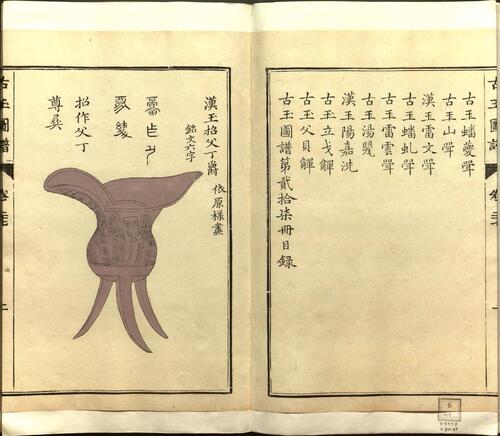 古玉圖譜
古玉蟠夔斝
古玉山斝
漢玉雷文斝
古玉蟠虬斝
古玉雷雲斝
古玉湯
漢玉陽嘉洗
古玉立戈觶
古玉父貝觶
古玉圖譜第貳拾柒冊目錄
漢玉招父丁爵 依原樣畫
銘文六字
招作父丁
尊彝
古玉圖譜
6